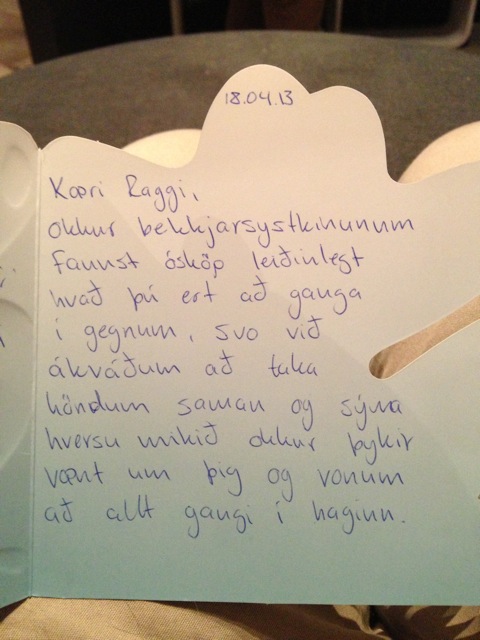 18.04.13
Kæri Raggi,
okkur bekkjarsystkinunum
fannst ósköp leiðinlegt
hvað þú ert að ganga
í gegnum, svo við
ákváðum að taka
höndum saman og sýna
hversu mikið okkur þykir
vænt um þig og vonum
að allt gangi í haginn.